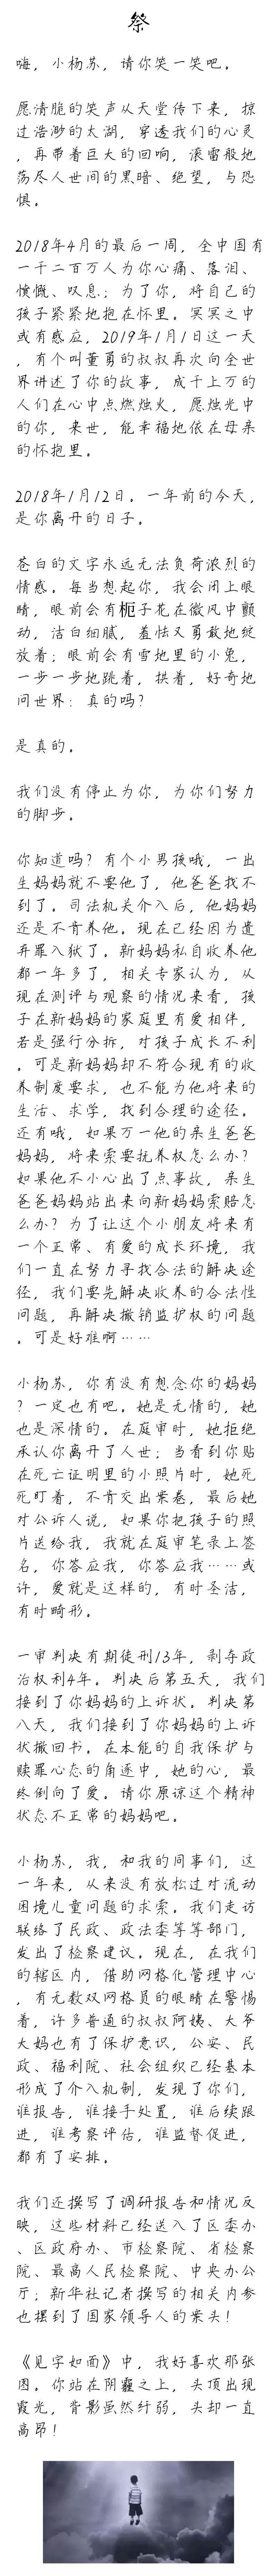 祭
嗨，小杨苏，请你笑一笑吧。
愿清脆的笑声从天堂传下来，掠
过浩渺的太湖，穿透我们的心灵
，再带着巨大的回响，滚雷般地
荡尽人世间的黑暗、绝望，与恐
惧。
2018年4月的最后一周，全中国有
一千二百万人为你心痛、落泪、
愤慨、叹息；为了你，将自己的
孩子紧紧地抱在怀里。冥冥之中
或有感应，2019年1月1日这一天
，有个叫董勇的叔叔再次向全世
界讲述了你的故事，成千上万的
人们在心中点燃烛火，愿烛光中
的你，来世，能幸福地依在母亲
的怀抱里。
2018年1月12日。一年前的今天，
是你离开的日子。
苍白的文字永远无法负荷浓烈的
情感。每当想起你，我会闭上眼
睛，眼前会有栀子花在微风中颤
动，洁白细腻，羞怯又勇敢地绽
放着；眼前会有雪地里的小兔，
一步一步地跳着，拱着，好奇地
问世界：真的吗？
是真的。
我们没有停止为你，为你们努力
的脚步。
你知道吗？有个小男孩哦，一出
生妈妈就不要他了，他爸爸找不
到了。司法机关介入后，他妈妈
还是不肯养他。现在已经因为遗
弃罪入狱了。新妈妈私自收养他
都一年多了，相关专家认为，从
现在测评与观察的情况来看，孩
子在新妈妈的家庭里有爱相伴，
若是强行分拆，对孩子成长不利
。可是新妈妈却不符合现有的收
养制度要求，也不能为他将来的
生活、求学，找到合理的途径。
还有哦，如果万一他的亲生爸爸
妈妈，将来索要抚养权怎么办？
如果他不小心出了点事故，亲生
爸爸妈妈站出来向新妈妈索赔怎
么办？为了让这个小朋友将来有
一个正常、有爱的成长环境，我
们一直在努力寻找合法的解决途
径，我们要先解决收养的合法性
问题，再解决撤销监护权的问题
。可是好难啊……
小杨苏，你有没有想念你的妈妈
？一定也有吧。她是无情的，她
也是深情的。在庭审时，她拒绝
承认你离开了人世；当看到你贴
在死亡证明里的小照片时，她死
死盯着，不肯交出案卷，最后她
对公诉人说，如果你把孩子的照
片送给我，我就在庭审笔录上签
名，你答应我，你答应我……或
许，爱就是这样的，有时圣洁，
有时畸形。
一审判决有期徒刑13年，剥夺政
治权利4年。判决后第五天，我们
接到了你妈妈的上诉状。判决第
八天，我们接到了你妈妈的上诉
状撤回书。在本能的自我保护与
赎罪心态的角逐中，她的心，最
终倒向了爱。请你原谅这个精神
状态不正常的妈妈吧。
小杨苏，我，和我的同事们，这
一年来，从来没有放松过对流动
困境儿童问题的求索。我们走访
联络了民政、政法委等等部门，
发出了检察建议。现在，在我们
的辖区内，借助网格化管理中心
，有无数双网格员的眼睛在警惕
着，许多普通的叔叔阿姨、大爷
大妈也有了保护意识，公安、民
政、福利院、社会组织已经基本
形成了介入机制，发现了你们，
谁报告，谁接手处置，谁后续跟
进，谁考察评估，谁监督促进，
都有了安排。
我们还撰写了调研报告和情况反
映，这些材料已经送入了区委办
、区政府办、市检察院、省检察
院、最高人民检察院、中央办公
厅；新华社记者撰写的相关内参
也摆到了国家领导人的案头！
《见字如面》中，我好喜欢那张
图。你站在阴霾之上，头顶出现
霞光，背影虽然纤弱，头却一直
高昂！